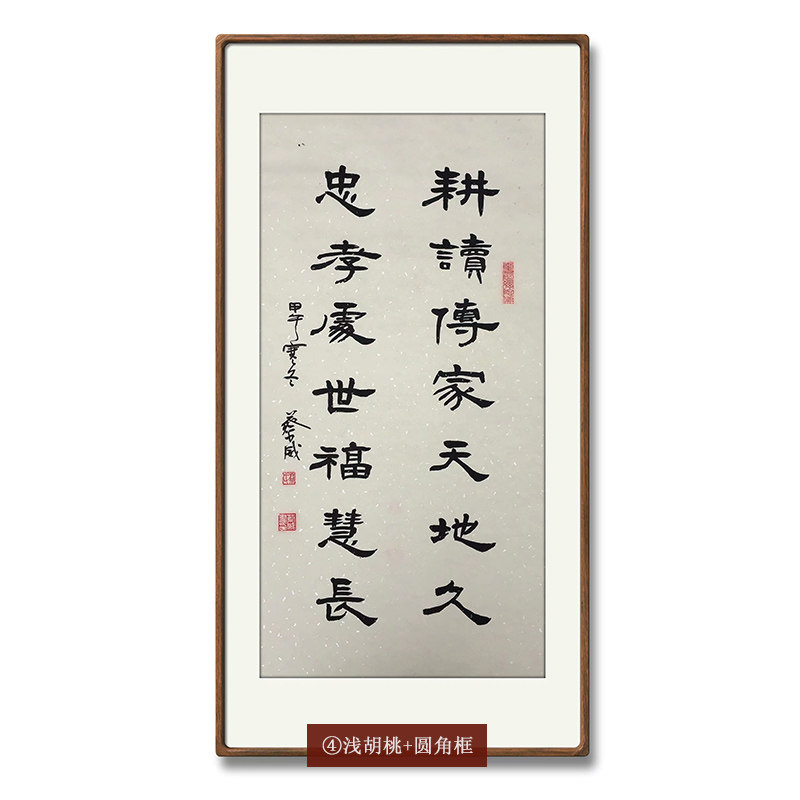 耕讀傳家天地久
忠孝處世福慧長
甲午寒冬
蔡威
④浅胡桃+圆角框